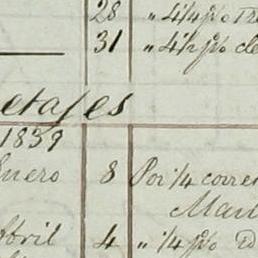 28 " 4 1/4 p%
31 " 4 1/2 p% de
etajes
1839
Enero 8 Por 1/4 corre
Abril 4 " 1/4 p%